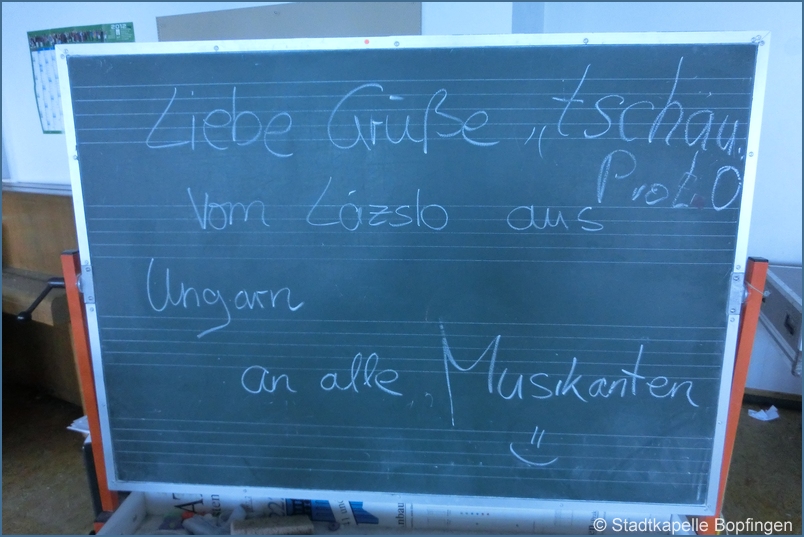 Liebe Grüße „tschäu.
Prot.O
Vom Lázslo aus
Ungarn
an alle Musikanten
2012
© Stadtkapelle Bopfingen